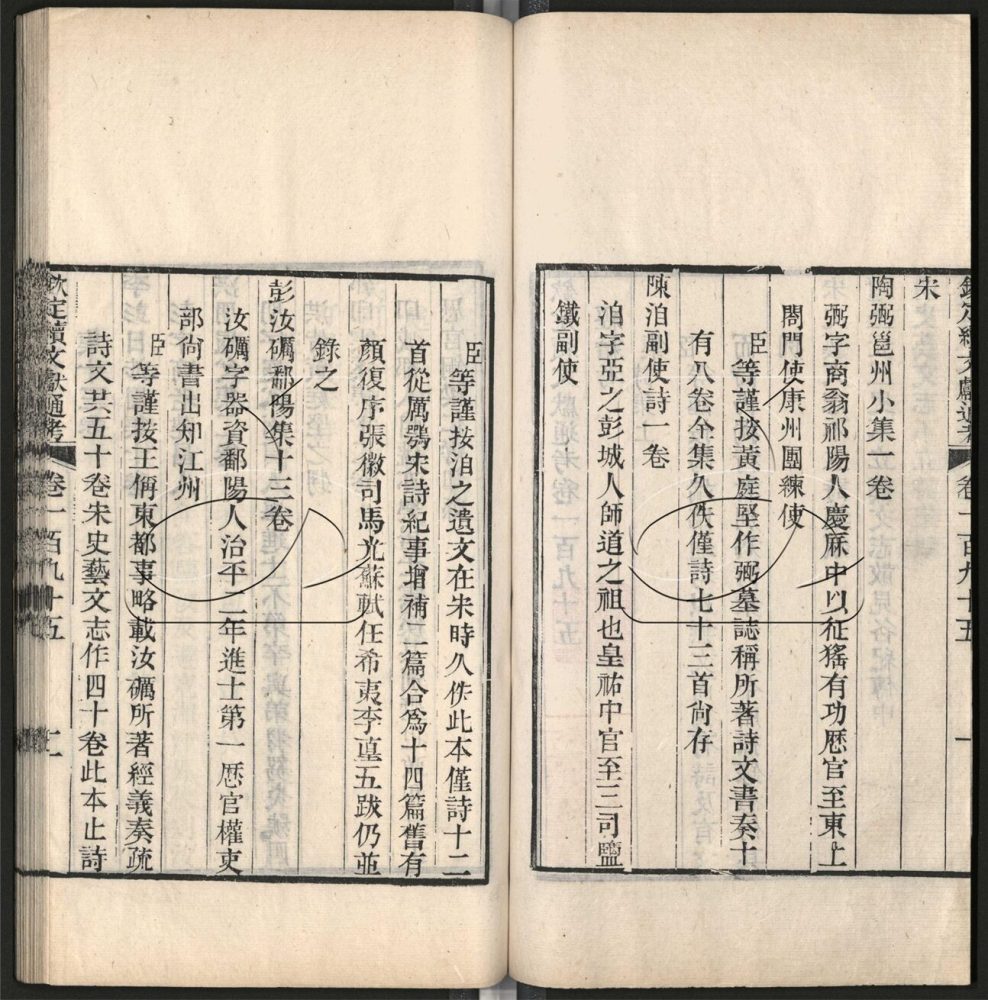 欽定續文獻通考 卷一百九十五 一
宋
陶弼邕州小集一卷
弼字商翁祁陽人慶厤中以征猺有功厯官至東上
閤門使康州團練使
臣等謹按黃庭堅作弼墓誌稱所著詩文書奏十
有八卷全集久佚僅詩七十三首尙存
陳洎副使詩一卷
洎字亞之彭城人師道之祖也皇祐中官至三司鹽
鐵副使
臣等謹按洎之遺文在宋時久佚此本僅詩十二
首從厲鶚宋詩紀事增補二篇合爲十四篇舊有
顏復序張徽司馬光蘇軾任希夷李㙓五跋仍並
錄之
彭汝礪鄱陽集十三卷
汝礪字器資鄱陽人治平二年進士第一厯官權吏
部尙書出知江州
臣等謹按王偁東都事略載汝礪所著經義奏疏
詩文共五十卷宋史藝文志作四十卷此本止詩
欽定續文獻通考 卷一百九十五 二